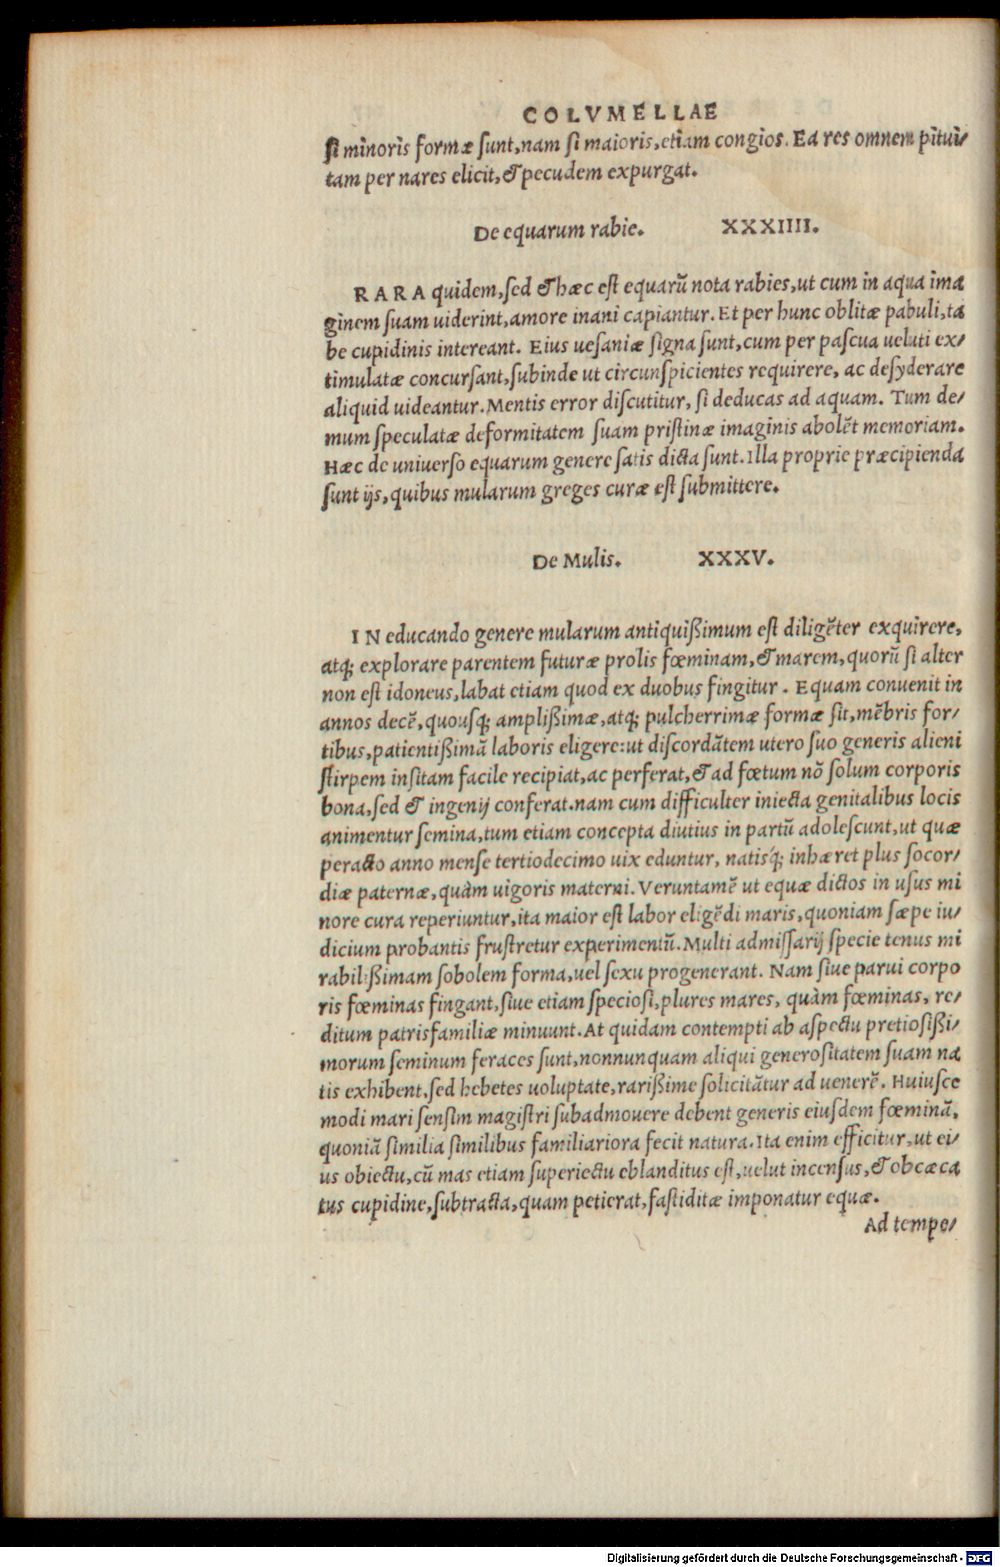 COLVMELLAE
si minoris formæ sunt, nam si maioris, etiam congios. Ea res omnem pitui/
tam per nares elicit, & pecudem expurgat.
De equarum rabie. XXXIIII.
RARA quidem, sed & hæc est equarũ nota rabies, ut cum in aqua ima
ginem suam uiderint, amore inani capiantur. Et per hunc oblitæ pabuli, ta
be cupidinis intereant. Eius uesaniæ signa sunt, cum per pascua ueluti ex/
timulatæ concursant, subinde ut circunspicientes requirere, ac desyderare
aliquid uideantur. Mentis error discutitur, si deducas ad aquam. Tum de/
mum speculatæ deformitatem suam pristinæ imaginis abolẽt memoriam.
Hæc de uniuerso equarum genere satis dicta sunt. Illa proprie præcipienda
sunt ijs, quibus mularum greges curæ est submittere.
De Mulis. XXXV.
IN educando genere mularum antiquißimum est diligẽter exquirere,
atq; explorare parentem futuræ prolis fœminam, & marem, quorũ si alter
non est idoneus, labat etiam quod ex duobus fingitur. Equam conuenit in
annos decẽ, quousq; amplißimæ, atq; pulcherrimæ formæ sit, mẽbris for/
tibus, patientißimã laboris eligere: ut discordãtem utero suo generis alieni
stirpem insitam facile recipiat, ac perferat, & ad fœtum nõ solum corporis
bona, sed & ingenij conferat. nam cum difficulter iniecta genitalibus locis
animentur semina, tum etiam concepta diutius in partũ adolescunt, ut quæ
peracto anno mense tertiodecimo uix eduntur, natisq́; inhæret plus socor/
diæ paternæ, quàm uigoris materni. Veruntamẽ ut equæ dictos in usus mi
nore cura reperiuntur, ita maior est labor eligẽdi maris, quoniam sæpe iu/
dicium probantis frustretur experimentũ. Multi admissarij specie tenus mi
rabilißimam sobolem forma, uel sexu progenerant. Nam siue parui corpo
ris fœminas fingant, siue etiam speciosi, plures mares, quàm fœminas, re/
ditum patrisfamiliæ minuunt. At quidam contempti ab aspectu pretiosißi/
morum seminum feraces sunt, nonnunquam aliqui generositatem suam na
tis exhibent, sed hebetes uoluptate, rarißime solicitãtur ad uenerẽ. Huiusce
modi mari sensim magistri subadmouere debent generis eiusdem fœminã,
quoniã similia similibus familiariora fecit natura. Ita enim efficitur, ut ei/
us obiectu, cũ mas etiam superiectu eblanditus est, uelut incensus, & obcæca
tus cupidine, subtracta, quam petierat, fastiditæ imponatur equæ.
Ad tempe/
Digitalisierung gefördert durch die Deutsche Forschungsgemeinschaft - DFG